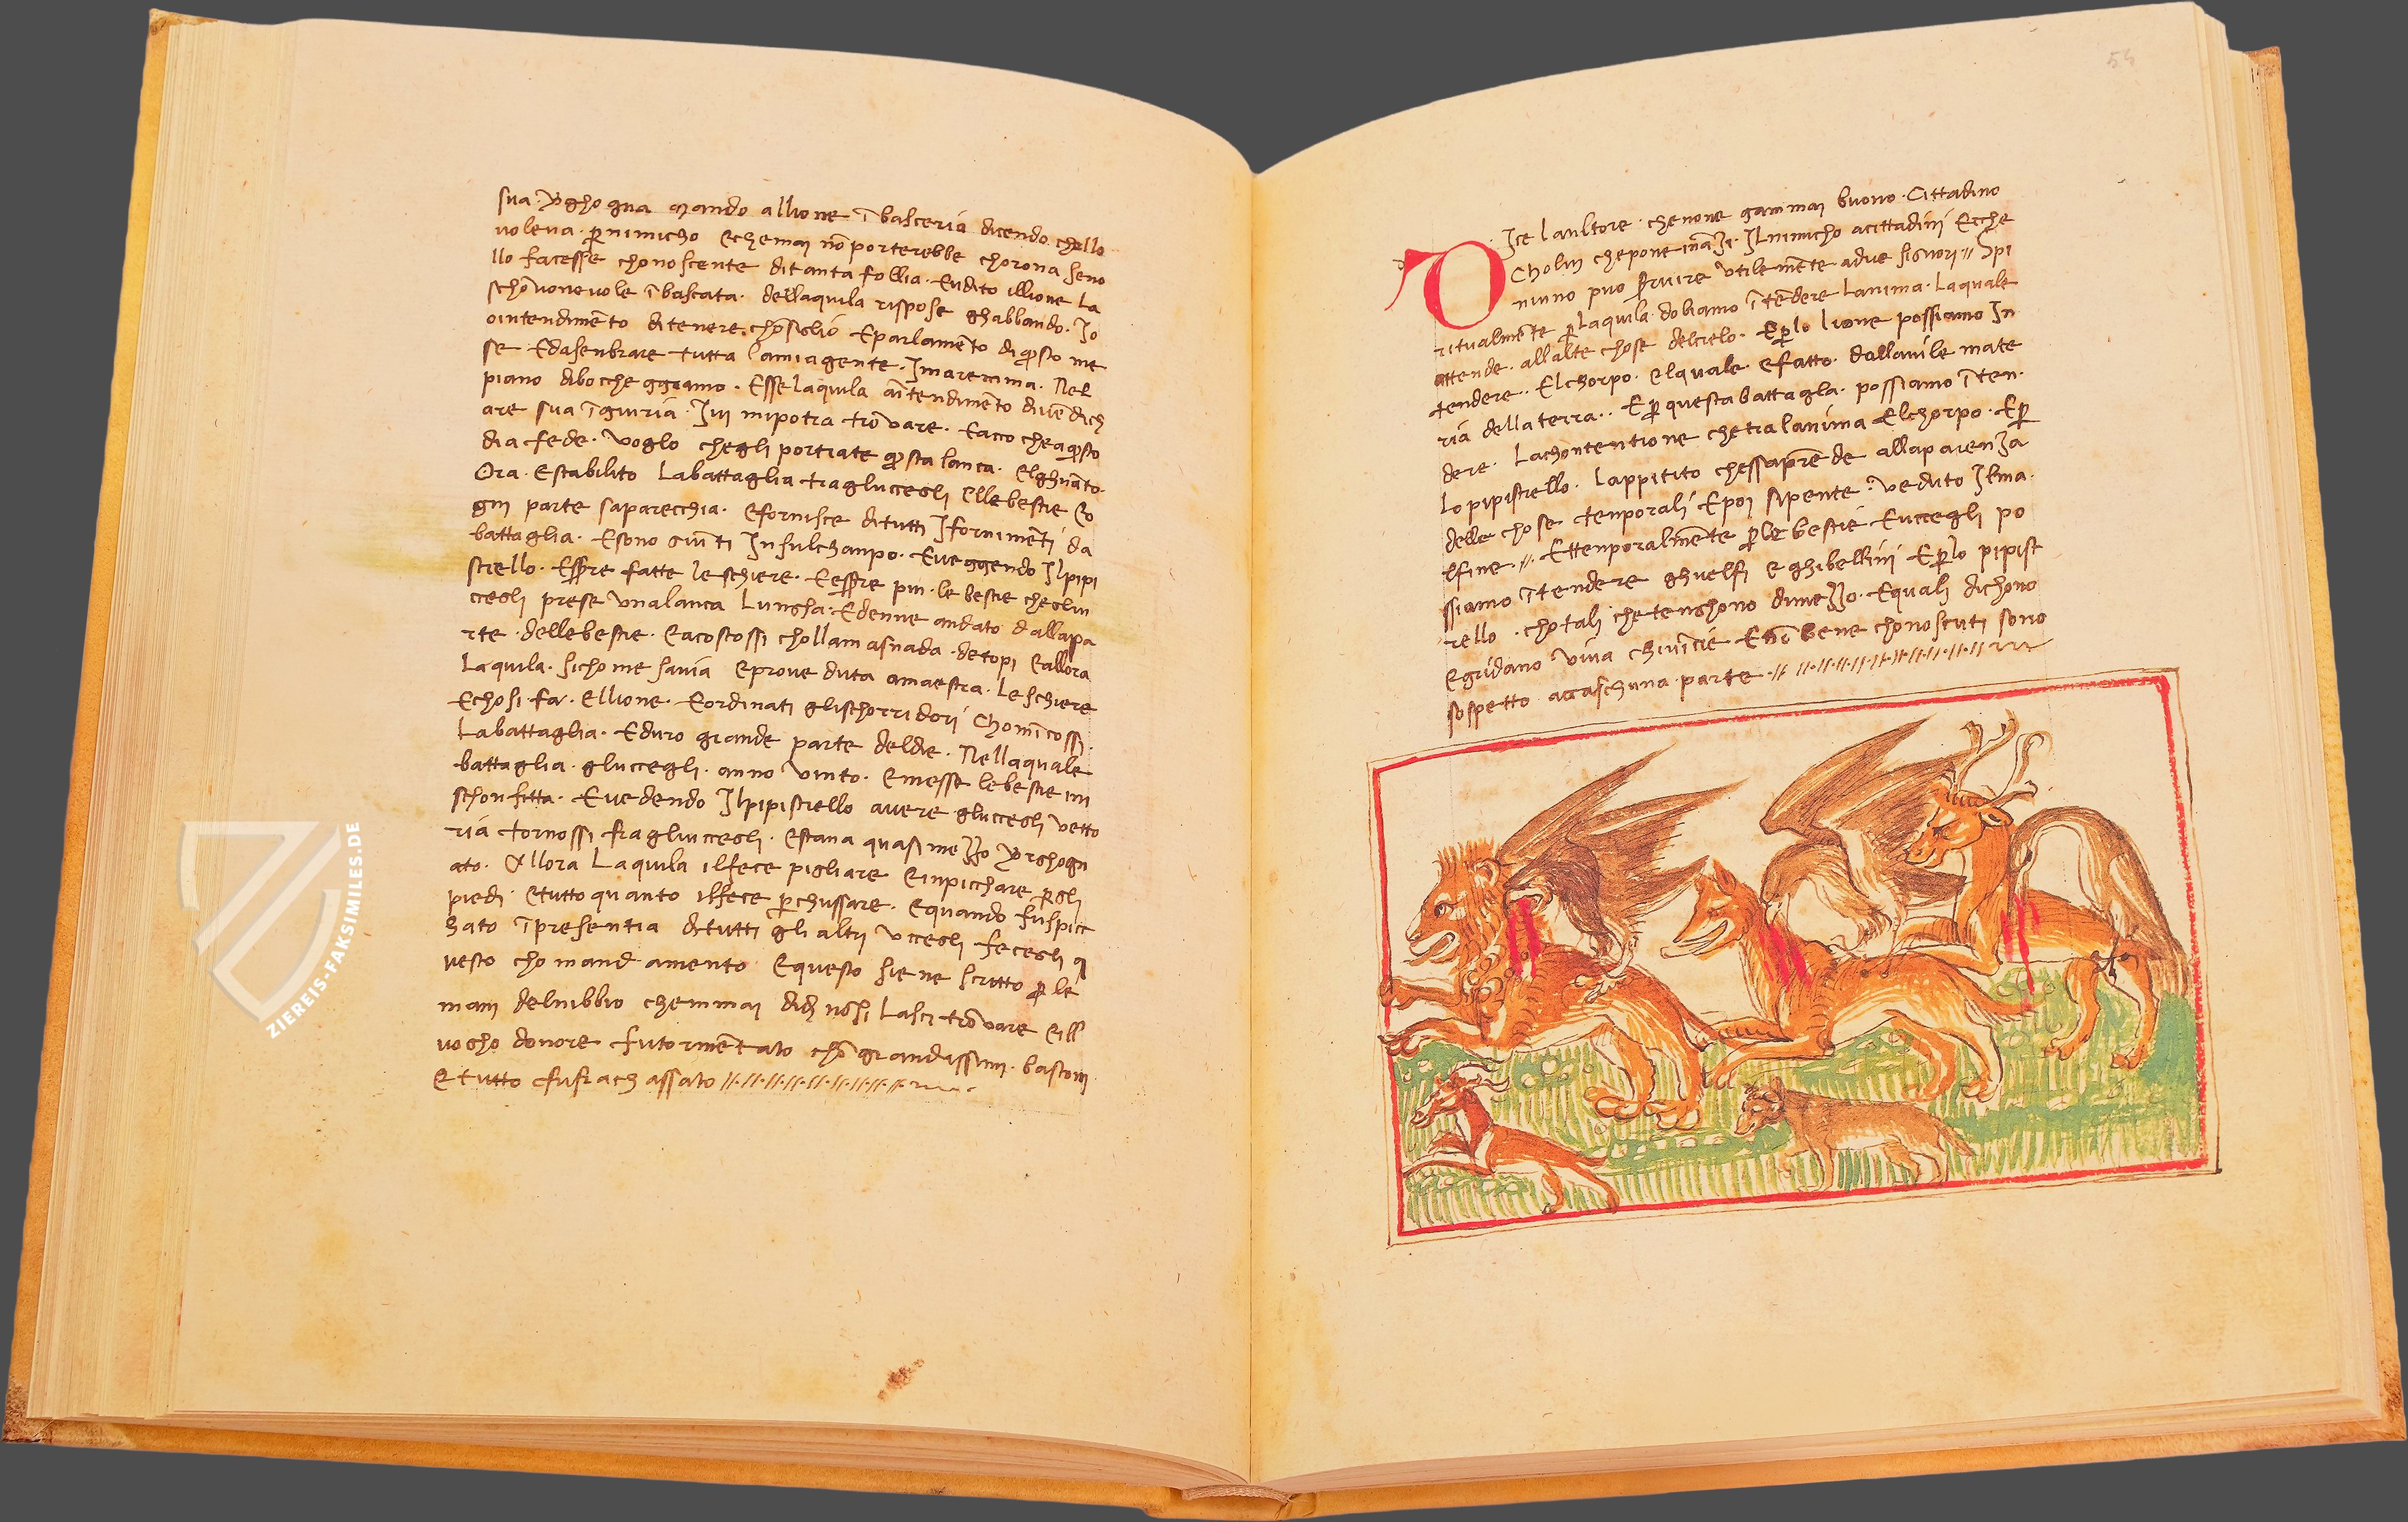 sua v̄ghogna mando allione ībasceria dicendo chello
voleva. p̄ nimicho Echemai nō porterebbe chorona seno
llo facesse chonoscente ditanta follia. Eudito illione La
schōvonevole ībascata. dellaquila rispose ghabbando. Jo
ointendimēto ditenere. chōsiglio Eparlamēto diq̄sto me
se Edasenbrare tutta lamiagente. Jmaremma. Nel
piano diboccheggiamo. Esse laquila aītendimēto divēdich
are sua īgiuria. Jvi mipotra trovare. Eacco cheaq̄sto
dia fede. voglo chegli portiate q̄sta lanca. Elghuāto.
Ora. Estabilito Labattaglia tragluccegli Ellebestie Eo
gni parte saparecchia. Efornisce ditutti Jfornimēti da
battaglia. Esono giūti Jnsulchanpo. Eveggendo Jlpipi
strello. Ess̄re fatte le schiere. Eess̄re piu. le bestie chegliu
ccegli prese vnalanca Lungha. Edenne andato dallapa
rte. dellebestie. Eacostossi chollamasnada. detopi Eallora
Laquila. sichome savia Eproveduta amaestra. Le schiere
Echosi. fa. Ellione. Eordinati glischorridori Chomīcossi.
Labattaglia. Eduro grande parte deldie. Nellaquale
battaglia. gluccegli. anno vinto. Emesse lebestie in
schonfitta. Evedendo Jlpipistrello avere gluccegli vetto
ria tornossi fragliuccegli. Estava quasi mezzo v̄ghogn
ato. Allora Laquila ilfece pigliare Einpicchare p̄gli
piedi. Etutto quanto ilfece p̄chussare. Equando fuspicc
hato īpresentia ditutti gli altri vccegli fecegli q
uesto chomandamento Equesto siene scritto p̄ le
mani delnibbio chemmai didi nōsi lasci trovare Eill
uogho donore futormētato chō grandissimi. bastoni
Etutto cfufrachassato
54
DJce laultore. chenone gammai buono. Cittadino
Cholui chepone ināzi. Jlnimicho acittadini Ecche
niuno puo s̄rvire vtilemēte adue signori // Spi
ritualmēte p̄ Laquila dobiamo ītēdere Lanima. Laquale
attende. allalte chose delcielo. Ep̄lo lione possiamo In
tendere. Elchorpo. Elquale efatto. dallavile mate
ria dellaterra.. Ep̄ questa battagla. possiamo īten.
dere. Lachontentione chetralanima Elchorpo. Ep̄
Lo pipistrello. Lappitito chessaprēde allaparenza
delle chose tenporali Epoi sipente. veduto Jlma.
lfine. // Ettenporalmēte p̄le bestie Euccegli po
ssiamo ītendere ghuelfi Eghibellini Ep̄lo pipist
rello. chotali chetenghono dimezzo. Equali dichono
Egridano viva chivīcie Enōbene chonosciuti sono
sospetto acciaschuna parte.
ZIEREIS-FAKSIMILES.DE